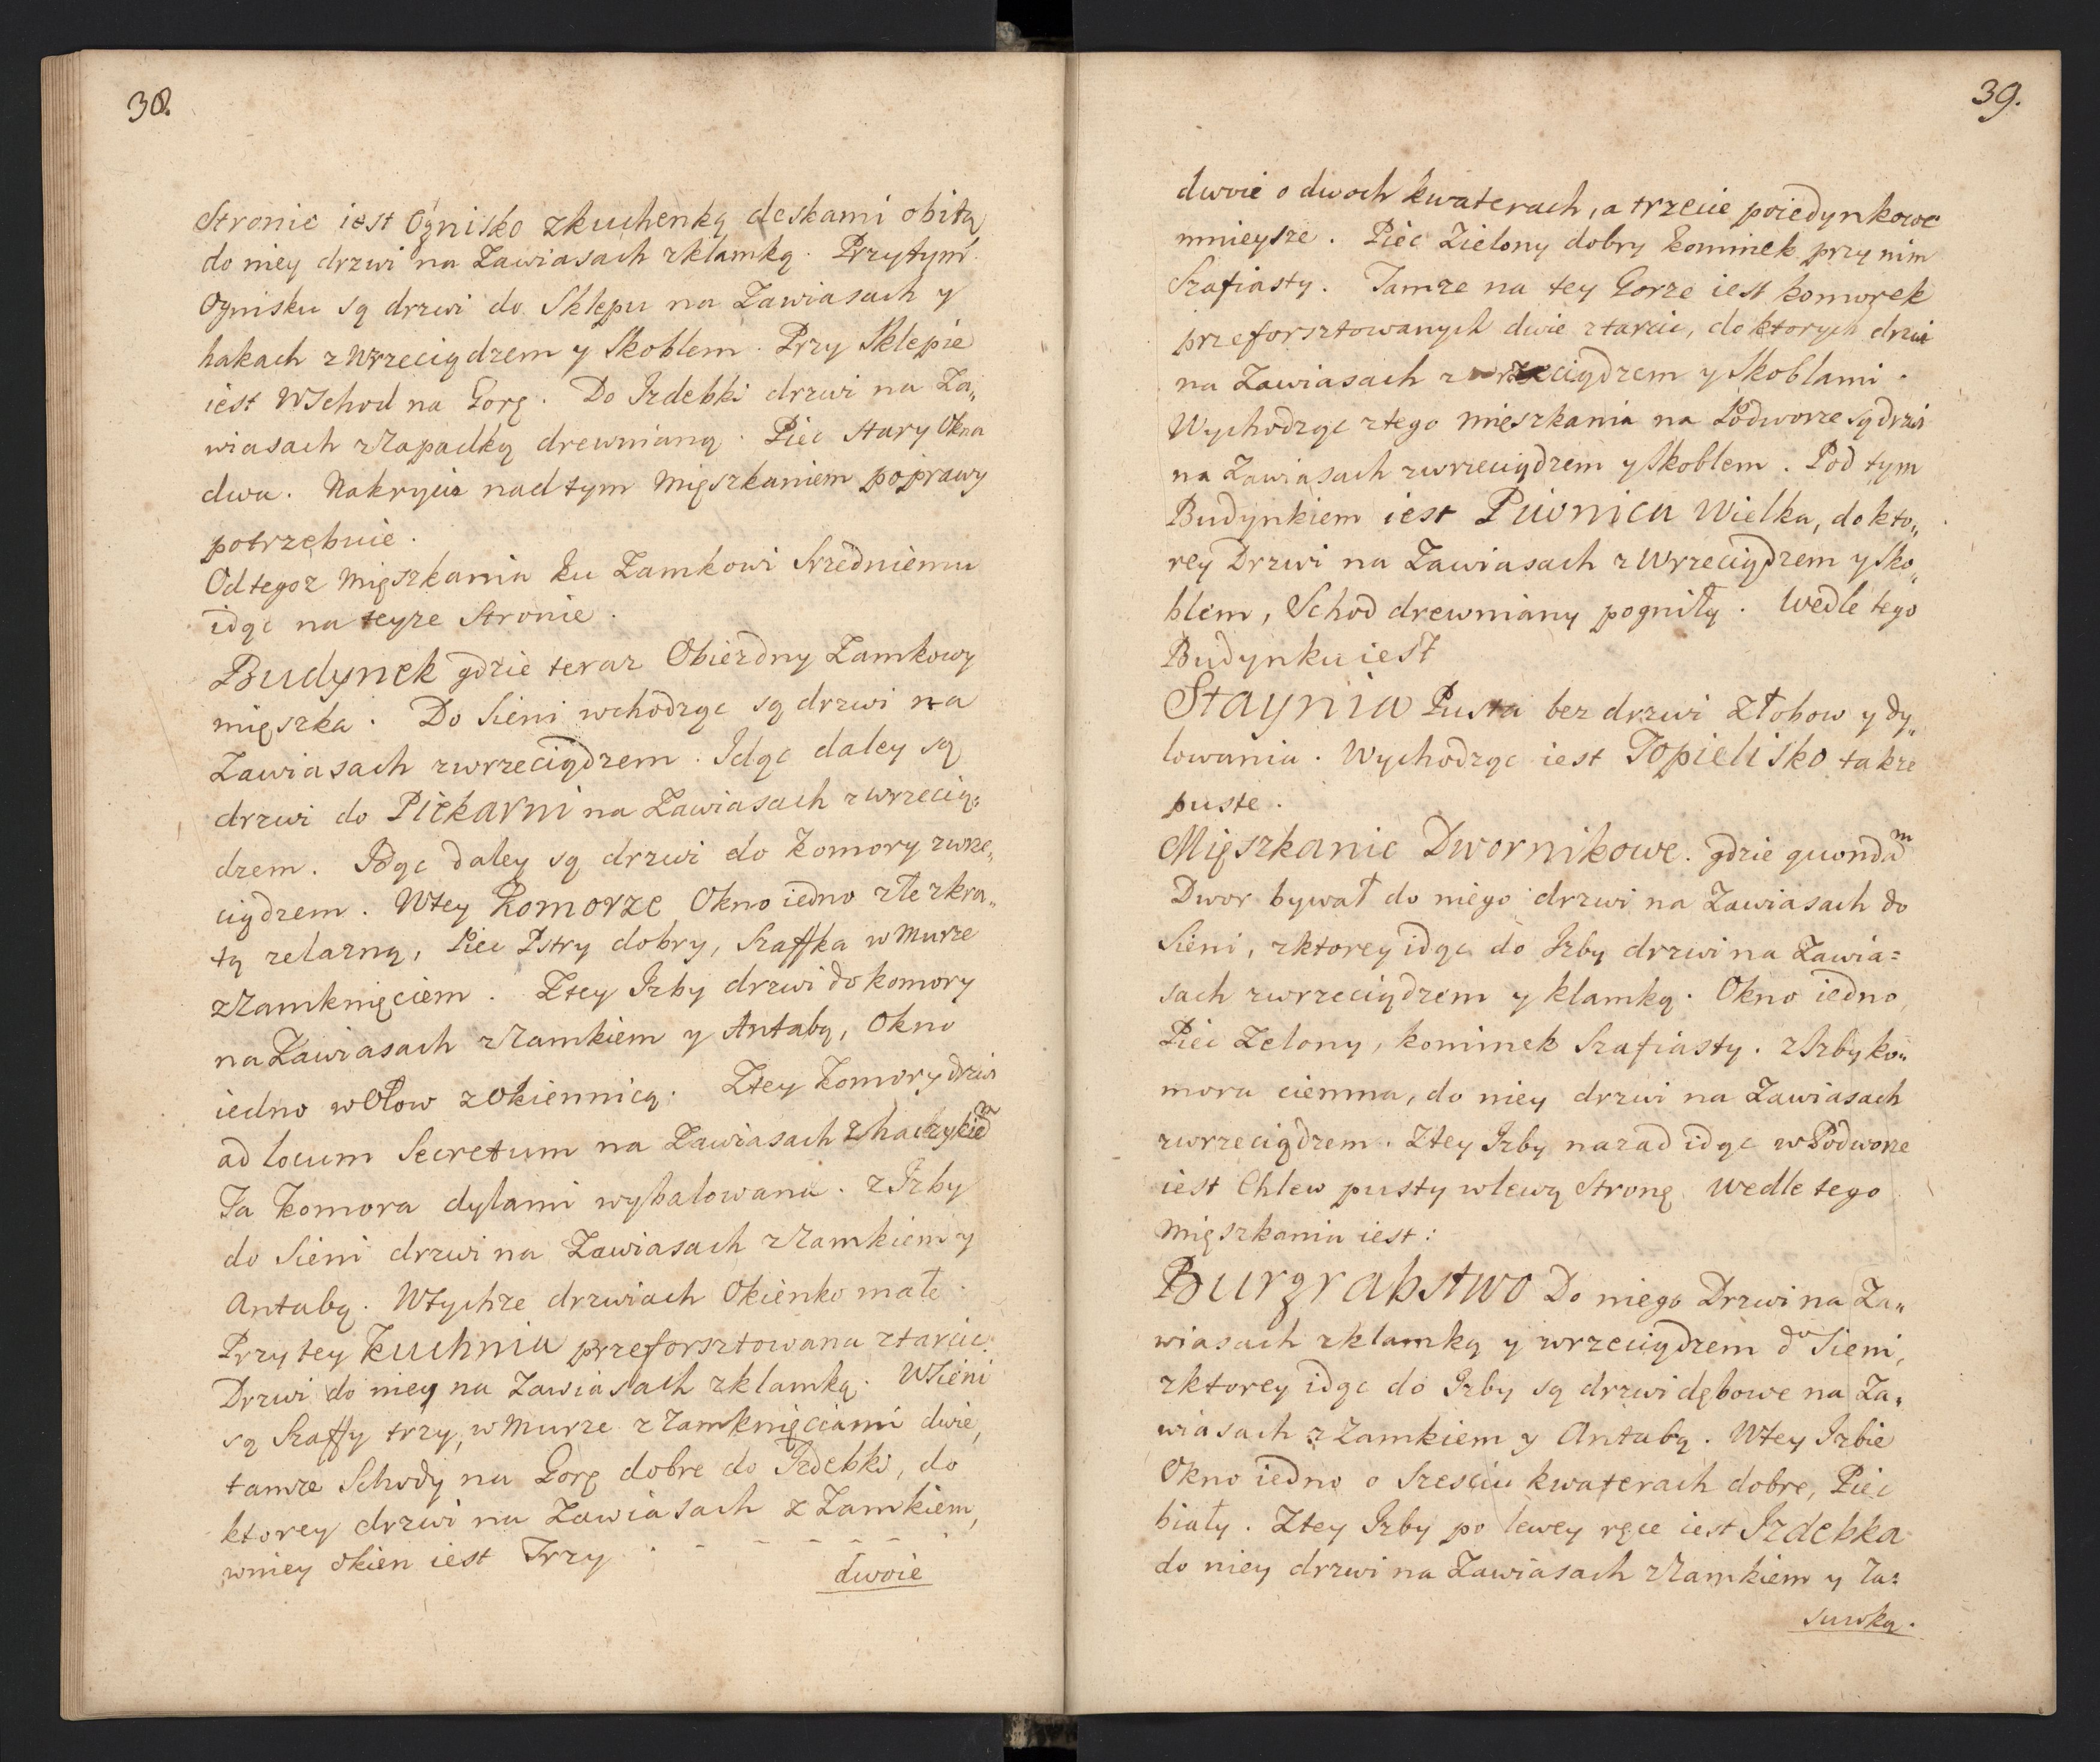 38.
Stronie iest Ognisko zkuchenką deskami obitą
do niey drzwi na Zawiasach zklamką. Przytym
Ognisku są drzwi do Sklepu na Zawiasach y
hakach z Wrzeciądzem y Skoblem. Przy Sklepie
iest WSchod na Gorę. Do Izdebki drzwi na Za„
wiasach zZapadką drewnianą. Piec Stary Okna
dwa. Nakrycia nad tym Mięszkaniem poprawy
potrzebuie.
Od tegoz Mięszkania ku Zamkowi Srzedniemu
idąc na teyze Stronie.
Budynek gdzie teraz Obiezdny Zamkowy
mięszka. Do Sieni wchodząc są drzwi na
Zawiasach zwrzeciądzem. Idąc daley są
drzwi do Piekarni na Zawiasach zwrzecią:
dzem. Idąc daley są drzwi do Komory zwrze„
ciądzem. Wtey Komorze Okno iedno złe zkra„
tą zelazną, Piec Pstry dobry, Szaffka w Murze
zZamknięciem. Ztey Izby drzwi do komory
na Zawiasach zZamkiem y Antabą, Okno
iedno wOłow zOkiennicą. Ztey Komory drzwi
ad locum Secretum na Zawiasach zhaczykiem
Ta Komora dylami wybalowana. zIzby
do Sieni drzwi na Zawiasach zZamkiem y
Antabą. Wtychze drzwiach Okienko małe.
Przy tey Kuchnia przeforsztowana ztarcic.
Drzwi do niey na Zawiasach zklamką. WSieni
są Szaffy trzy, w Murze z Zamknięciami dwie,
tamze Schody na Gorę dobre do Izdebki, do
ktorey drzwi na Zawiasach z Zamkiem,
wniey okien iest Trzy . - - - - - -
dwoie
39.
dwoie o dwoch kwaterach, a trzecie poiedynkowe
mnieysze. Piec Zielony dobry kominek przy nim
Szafiasty. Tamze na tey Gorze iest komorek
przeforsztowanych dwie ztarcic, do ktorych drzwi
na Zawiasach z wrzeciądzem y Skoblami.
Wychodząc ztego mięszkania na Podworze są drzwi
na Zawiasach zwrzeciądzem y Skoblem. Pod tym
Budynkiem iest Piwnica Wielka, do kto„
rey Drzwi na Zawiasach z Wrzeciądzem y Sko„
blem, Schod drewniany pogniły. Wedle tego
Budynku iest
Staynia Pusta bez drzwi złobow y dy„
lowania. Wychodząc iest Topielisko takze
puste.
Mięszkanie Dwornikowe. gdzie quondam
Dwor bywał do niego drzwi na Zawiasach do
Sieni, zktorey idąc do Izby drzwi na Zawia=
sach zwrzeciądzem y klamką. Okno iedno,
Piec Zelony, kominek Szafiasty. zIzby ko„
mora ciemna, do niey drzwi na Zawiasach
zwrzeciądzem. Ztey Izby nazad idąc w Podworze
iest Chlew pusty wlewą Stronę. Wedle tego
Mięszkania iest:
Burgrabstwo Do niego Drzwi na Za„
wiasach zklamką y zwrzeciądzem do Sieni,
zktorey idąc do Izby są drzwi dębowe na Za„
wiasach z Zamkiem y Antabą. Wtey Izbie
Okno iedno o Szesciu kwaterach dobre, Piec
biały. Ztey Izby po lewey ręce iest Izdebka
do niey drzwi na Zawiasach zZamkiem y Za:
suwką.